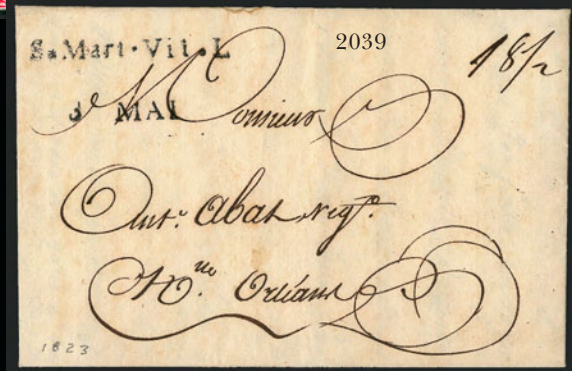 S. Mart. Vil. L
2039
18/2
3 MAI
Monsieur
Ant.e Abat, neg.t
N.lle Orléans
1823